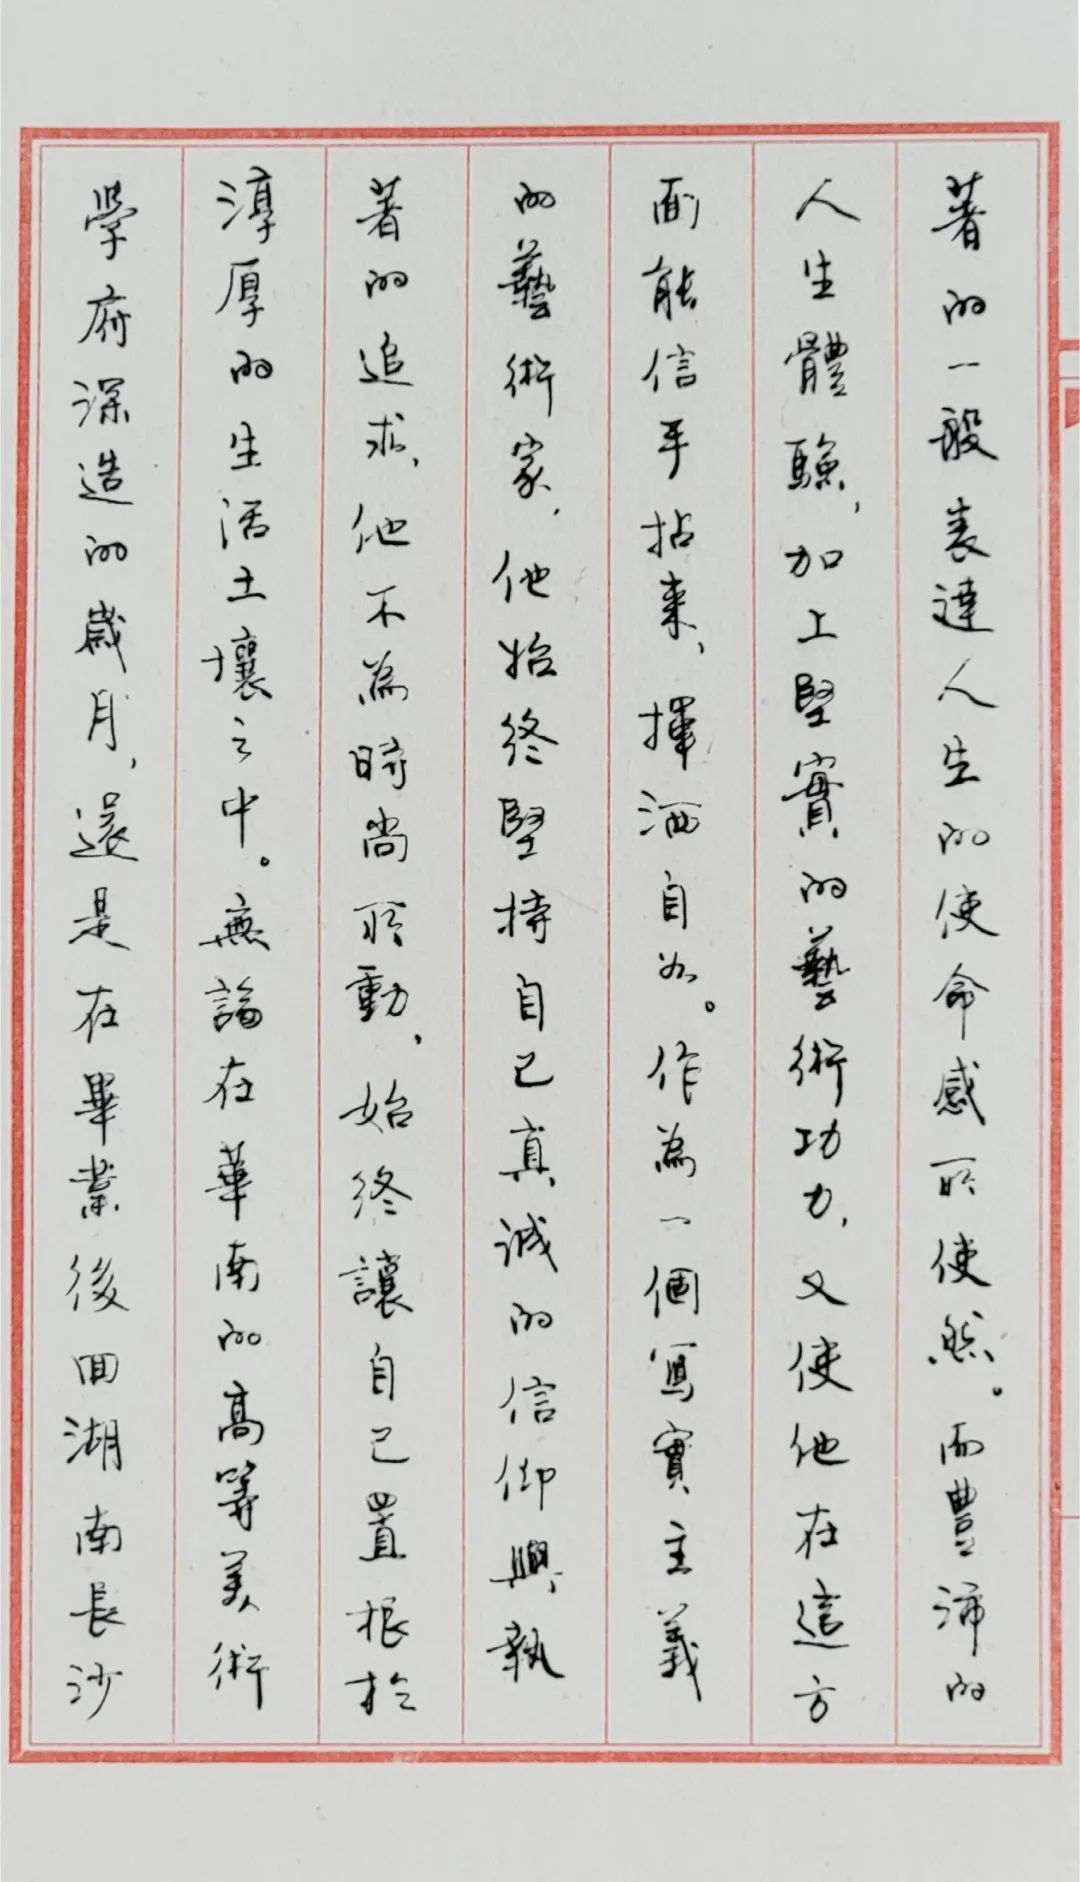 著的一般表達人生的使命感所使然。而豊沛的
人生體驗，加上堅實的藝術功力，又使他在這方
面能信手拈来，揮洒自如。作為一個寫實主義
的藝術家，他始終堅持自己真誠的信仰與執
著的追求，他不為時尚所動，始終讓自己置根於
淳厚的生活土壤之中。無論在華南的高等美術
學府深造的歲月，還是在畢業後回湖南長沙